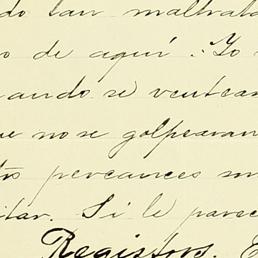 do tan maltrata
o de aquí. Yo
uando se ventean
ue no se golpearan
tos percances
itar. Si le parec
Registros. E